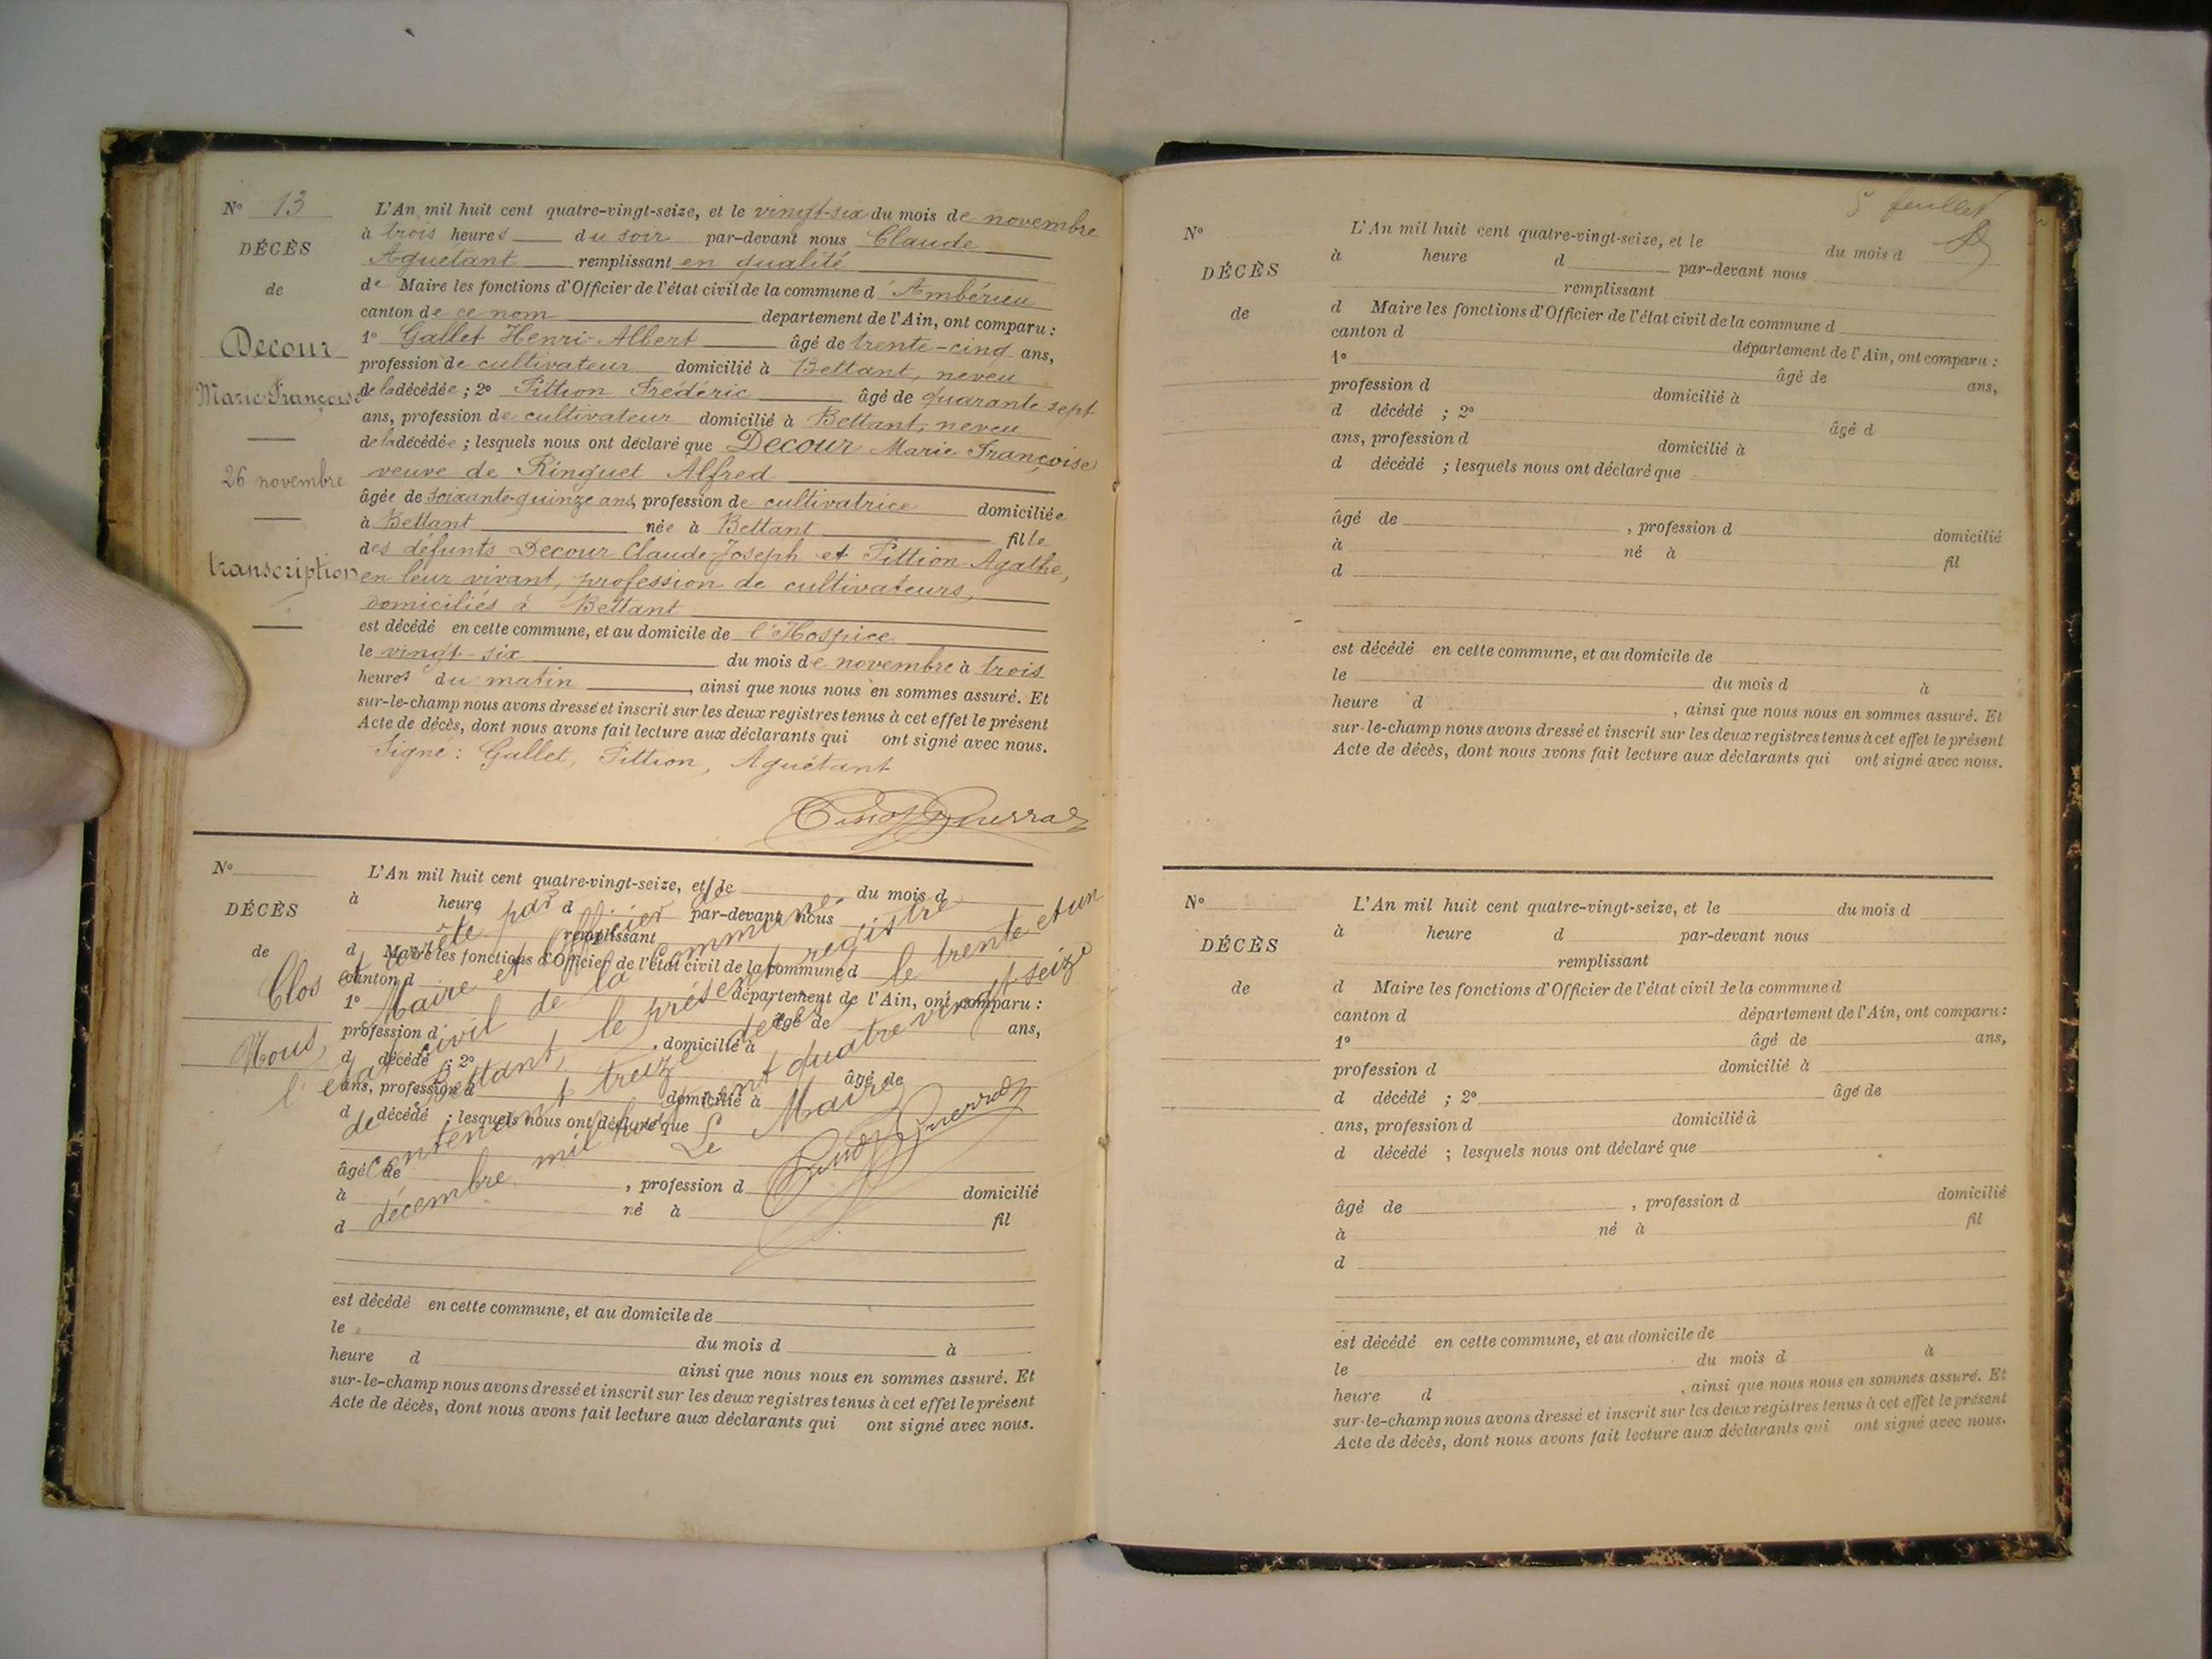 N° 13
DÉCÈS
de
Decour
Marie Françoise
26 novembre
transcription
L'An mil huit cent quatre-vingt-seize, et le vingt-six du mois de novembre
à trois heures du soir par-devant nous Claude
Aguétant remplissant en qualité
de Maire les fonctions d'Officier de l'état civil de la commune d'Ambérieu
canton de ce nom département de l'Ain, ont comparu :
1° Gallet Henri-Albert âgé de trente-cinq ans,
profession de cultivateur domicilié à Bettant, neveu
de la décédée ; 2° Pittion Frédéric âgé de quarante sept
ans, profession de cultivateur domicilié à Bettant, neveu
de la décédée ; lesquels nous ont déclaré que Decour Marie Françoise
veuve de Ringuet Alfred
âgée de soixante-quinze ans, profession de cultivatrice domiciliée
à Bettant née à Bettant fille
des défunts Decour Claude-Joseph et Pittion Agathe,
en leur vivant, profession de cultivateurs,
domiciliés à Bettant
est décédé en cette commune, et au domicile de l'Hospice
le vingt-six du mois de novembre à trois
heures du matin, ainsi que nous nous en sommes assuré. Et
sur-le-champ nous avons dressé et inscrit sur les deux registres tenus à cet effet le présent
Acte de décès, dont nous avons fait lecture aux déclarants qui ont signé avec nous.
Signé : Gallet, Pittion, Aguétant
N°
DÉCÈS
de
L'An mil huit cent quatre-vingt-seize, et le du mois d
à heure d par-devant nous
remplissant
d Maire les fonctions d'Officier de l'état civil de la commune d
canton d département de l'Ain, ont comparu :
1° âgé de ans,
profession d , domicilié à
d décédé ; 2° âgé de
ans, profession d domicilié à
d décédé ; lesquels nous ont déclaré que
âgé de , profession d domicilié
à né à fil
d
est décédé en cette commune, et au domicile de
le du mois d à
heure d ainsi que nous nous en sommes assuré. Et
sur-le-champ nous avons dressé et inscrit sur les deux registres tenus à cet effet le présent
Acte de décès, dont nous avons fait lecture aux déclarants qui ont signé avec nous.
Clos et arrêté par
Nous, Maire et officier de
l'état civil de la commune
de Bettant, le présent registre
contenant treize décès, le trente et un
décembre mil huit cent quatre vingt seize
Le Maire
5 feuillet
N°
DÉCÈS
de
L'An mil huit cent quatre-vingt-seize, et le du mois d
à heure d par-devant nous
remplissant
d Maire les fonctions d'Officier de l'état civil de la commune d
canton d département de l'Ain, ont comparu :
1° âgé de ans,
profession d domicilié à
d décédé ; 2° âgé d
ans, profession d domicilié à
d décédé ; lesquels nous ont déclaré que
âgé de , profession d domicilié
à né à fil
d
est décédé en cette commune, et au domicile de
le du mois d à
heure d , ainsi que nous nous en sommes assuré. Et
sur-le-champ nous avons dressé et inscrit sur les deux registres tenus à cet effet le présent
Acte de décès, dont nous avons fait lecture aux déclarants qui ont signé avec nous.
N°
DÉCÈS
de
L'An mil huit cent quatre-vingt-seize, et le du mois d
à heure d par-devant nous
remplissant
d Maire les fonctions d'Officier de l'état civil de la commune d
canton d département de l'Ain, ont comparu :
1° âgé de ans,
profession d domicilié à
d décédé ; 2° âgé de
ans, profession d domicilié à
d décédé ; lesquels nous ont déclaré que
âgé de , profession d domicilié
à né à fil
d
est décédé en cette commune, et au domicile de
le du mois d à
heure d , ainsi que nous nous en sommes assuré. Et
sur-le-champ nous avons dressé et inscrit sur les deux registres tenus à cet effet le présent
Acte de décès, dont nous avons fait lecture aux déclarants qui ont signé avec nous.